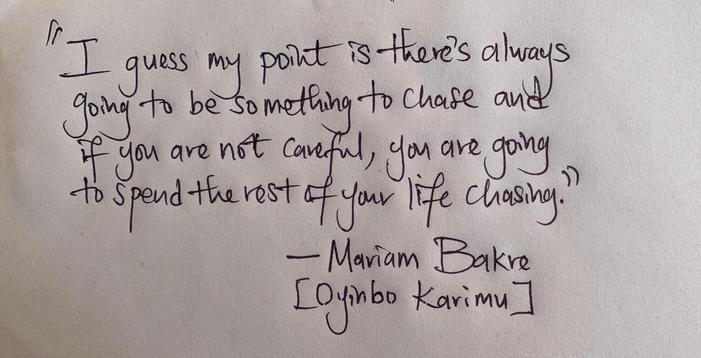 "I guess my point is there's always
going to be something to chase and
if you are not careful, you are going
to spend the rest of your life chasing."
— Mariam Bakre
[Oyinbo Karimu]